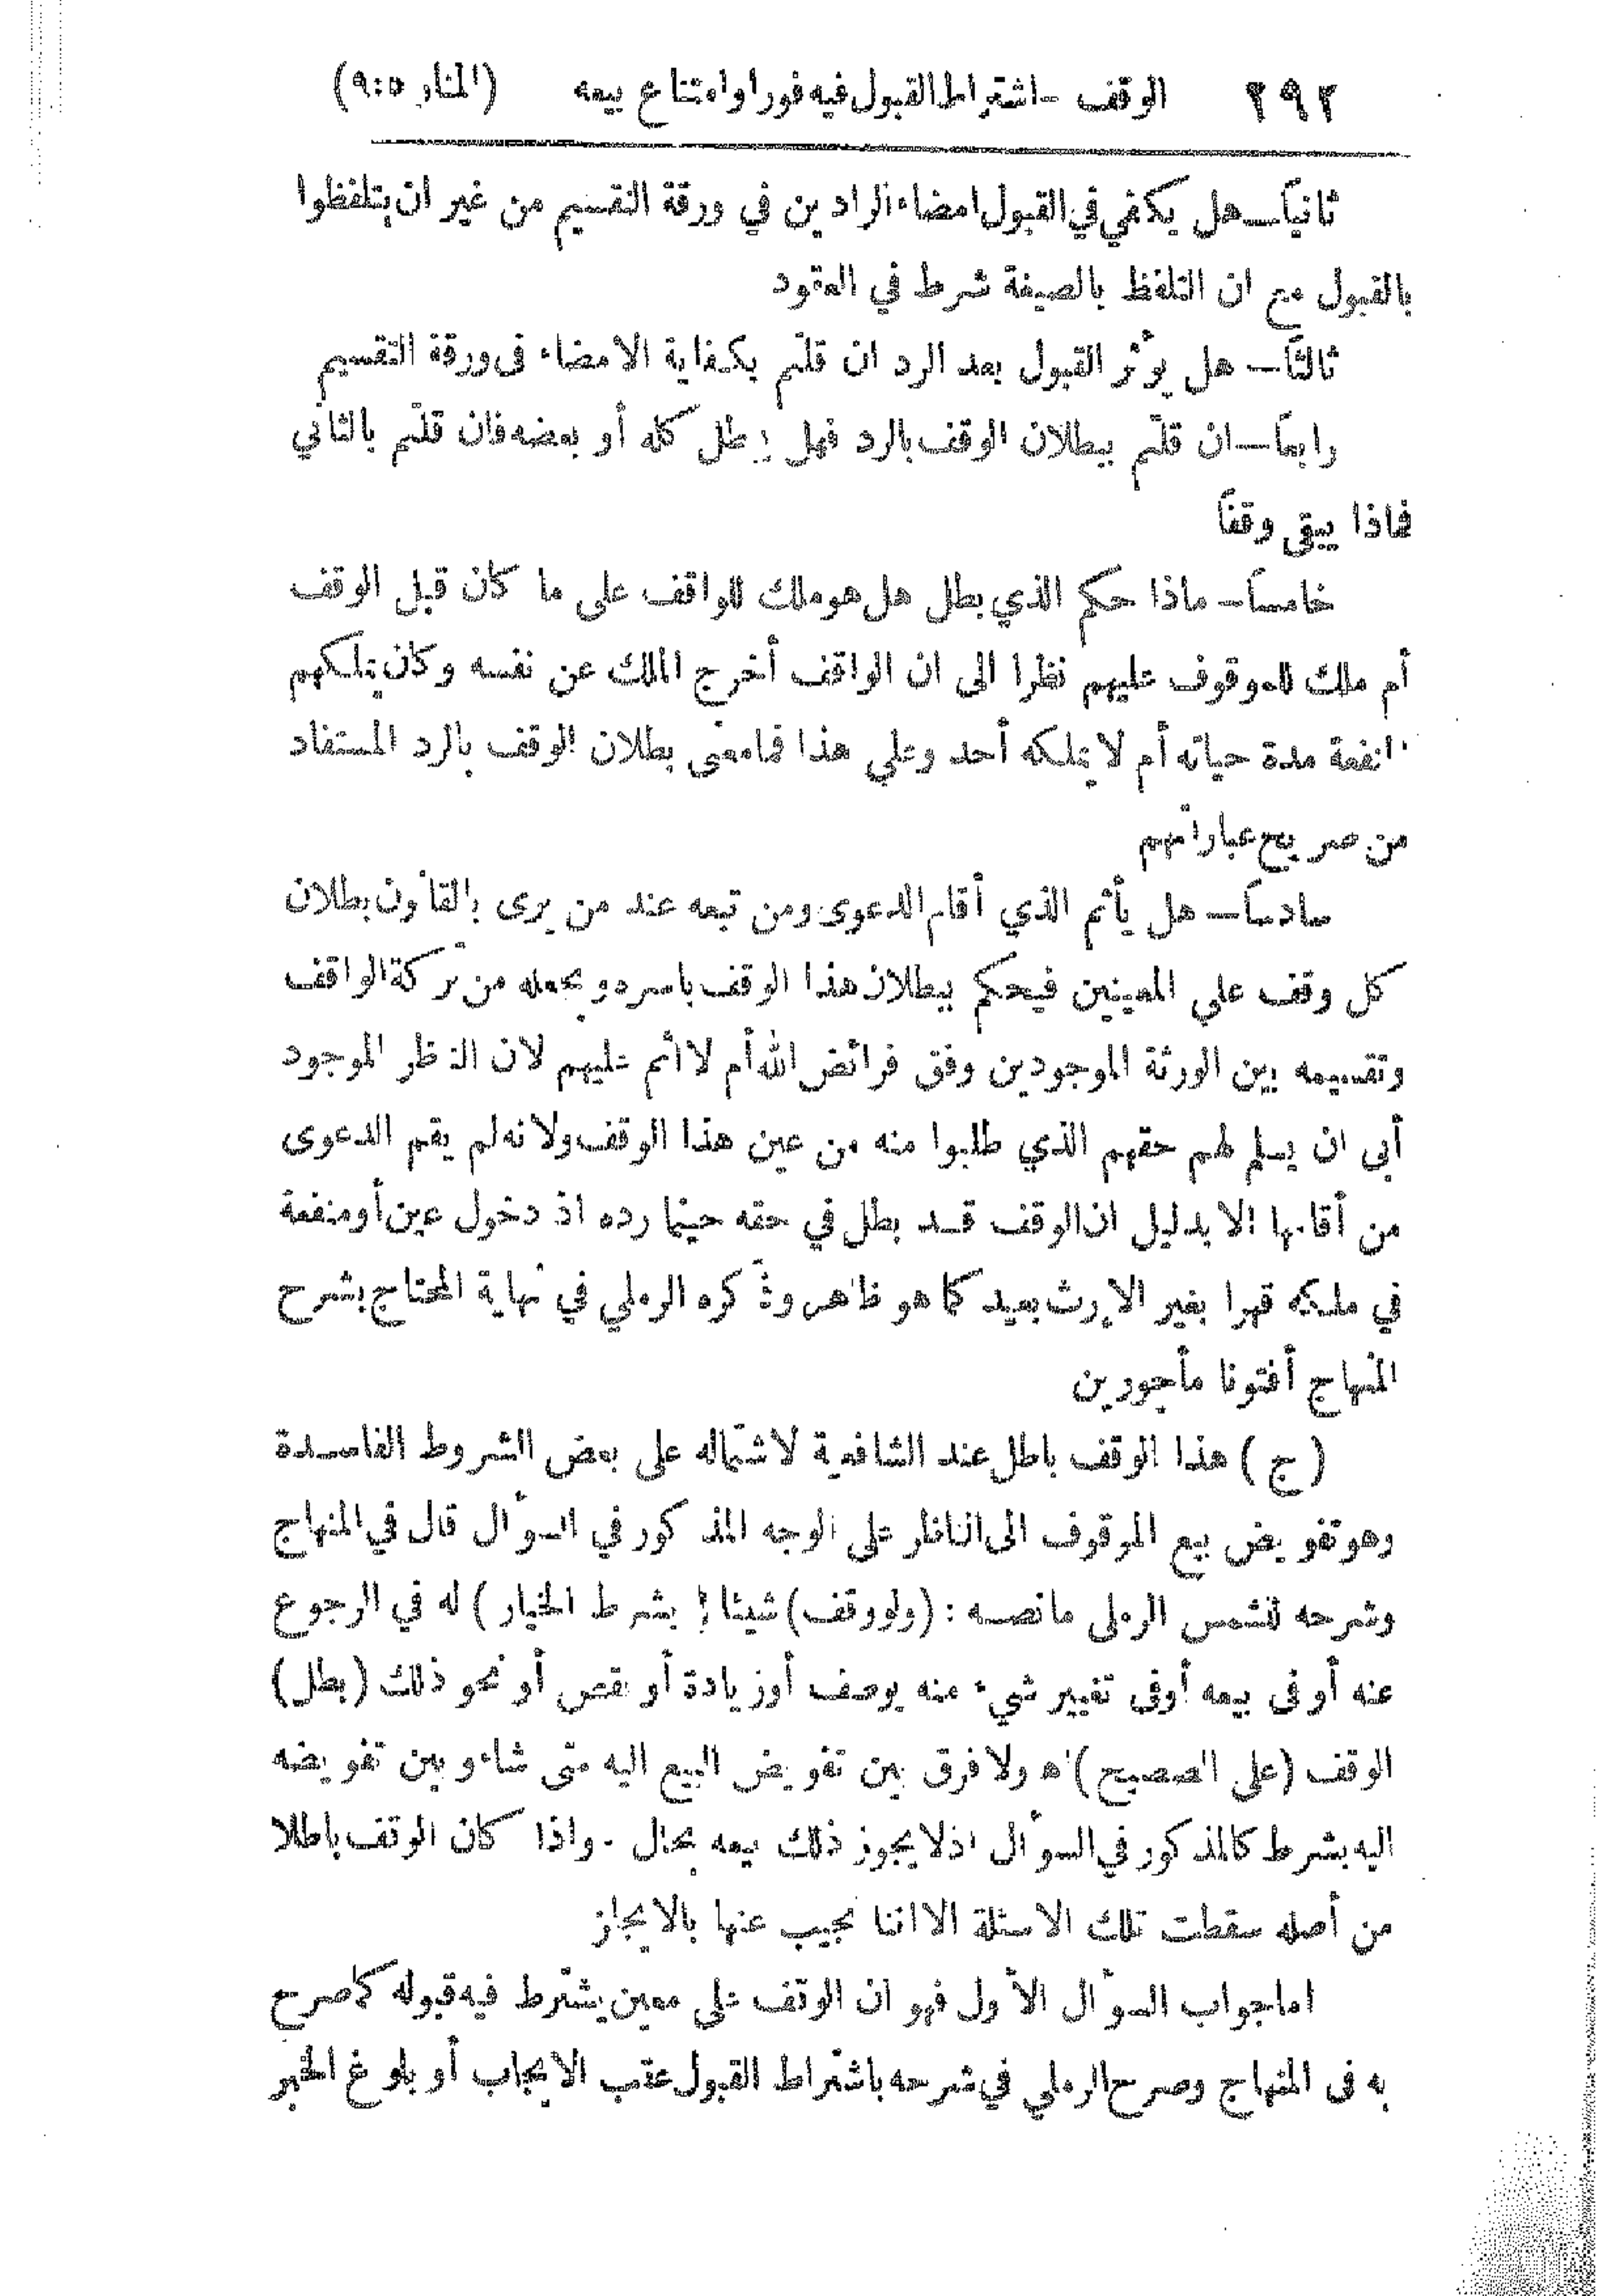 ٢٩٢ الوقف - اشتراط القبول فيه فورا وامتناع بيعه (المنار ٩:٥)
ثانياً – هل يكفي في القبول امضاء الرادين في ورقة التقسيم من غير ان يتلفظوا
بالقبول مع ان التلفظ بالصيغة شرط في العقود
ثالثاً – هل يؤثر القبول بعد الرد ان قلتم بكفاية الامضاء في ورقة التقسيم
رابعاً – ان قلتم ببطلان الوقف بالرد فهل يبطل كله أو بعضه فان قلتم بالثاني
فماذا يبقى وقفاً
خامساً – ماذا حكم الذي بطل هل هو ملك للواقف على ما كان قبل الوقف
أم ملك للموقوف عليهم نظرا الى ان الواقف أخرج الملك عن نفسه وكان يملكهم
انفعة مدة حياته أم لا يملكه أحد وعلي هذا فما معنى بطلان الوقف بالرد المستفاد
من صريح عباراتهم
سادساً – هل يأثم الذي أقام الدعوى ومن تبعه عند من يرى بالقانون بطلان
كل وقف علي المعينين فيحكم ببطلان هذا الوقف باسره ويجعله من تركة الواقف
وتقسيمه بين الورثة الموجودين وفق فرائض الله أم لا اثم عليهم لان الناظر الموجود
أبى ان يسلم لهم حقهم الذي طلبوا منه من عين هذا الوقف ولانه لم يقم الدعوى
من أقامها الا بدليل ان الوقف قد بطل في حقه حينما رده اذ دخول عين أو منفعة
في ملكه قهرا بغير الإرث بعيد كما هو ظاهر وذكره الرملي في نهاية المحتاج بشرح
المنهاج أفتونا مأجورين
(ج) هذا الوقف باطل عند الشافعية لاشتماله على بعض الشروط الفاسدة
وهو تفويض بيع الموقوف الى الناظر على الوجه المذكور في السؤال قال في المنهاج
وشرحه للشمس الرملى ما نصه : (ولو وقف) شيئا ( بشرط الخيار ) له في الرجوع
عنه أو فى بيعه أو فى تغيير شيء منه بوصف أو زيادة أو نقص أو نحو ذلك (بطل)
الوقف (على الصحيح) اه ولا فرق بين تفويض البيع اليه متى شاء و بين تفويضه
اليه بشرط كالمذكور في السؤال اذ لا يجوز ذلك بيعه بحال . واذا كان الوقف باطلا
من أصله سقطت تلك الاسئلة الا اننا نجيب عنها بالايجاز
اما جواب السؤال الأول فهو ان الوقف على معين يشترط فيه قبوله كما صرح
به فى المنهاج وصرح الرملي في شرحه باشتراط القبول عقب الايجاب أو بلوغ الخبر